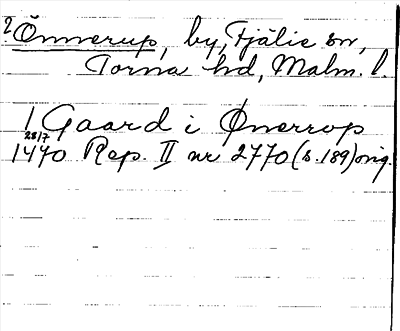 2 Önnerup, by, Fjälie sn,
Torna hd, Malm. l.
1 Gaard i Ønerrop
28/7
1470 Rep. II nr 2770 (s. 189) orig.